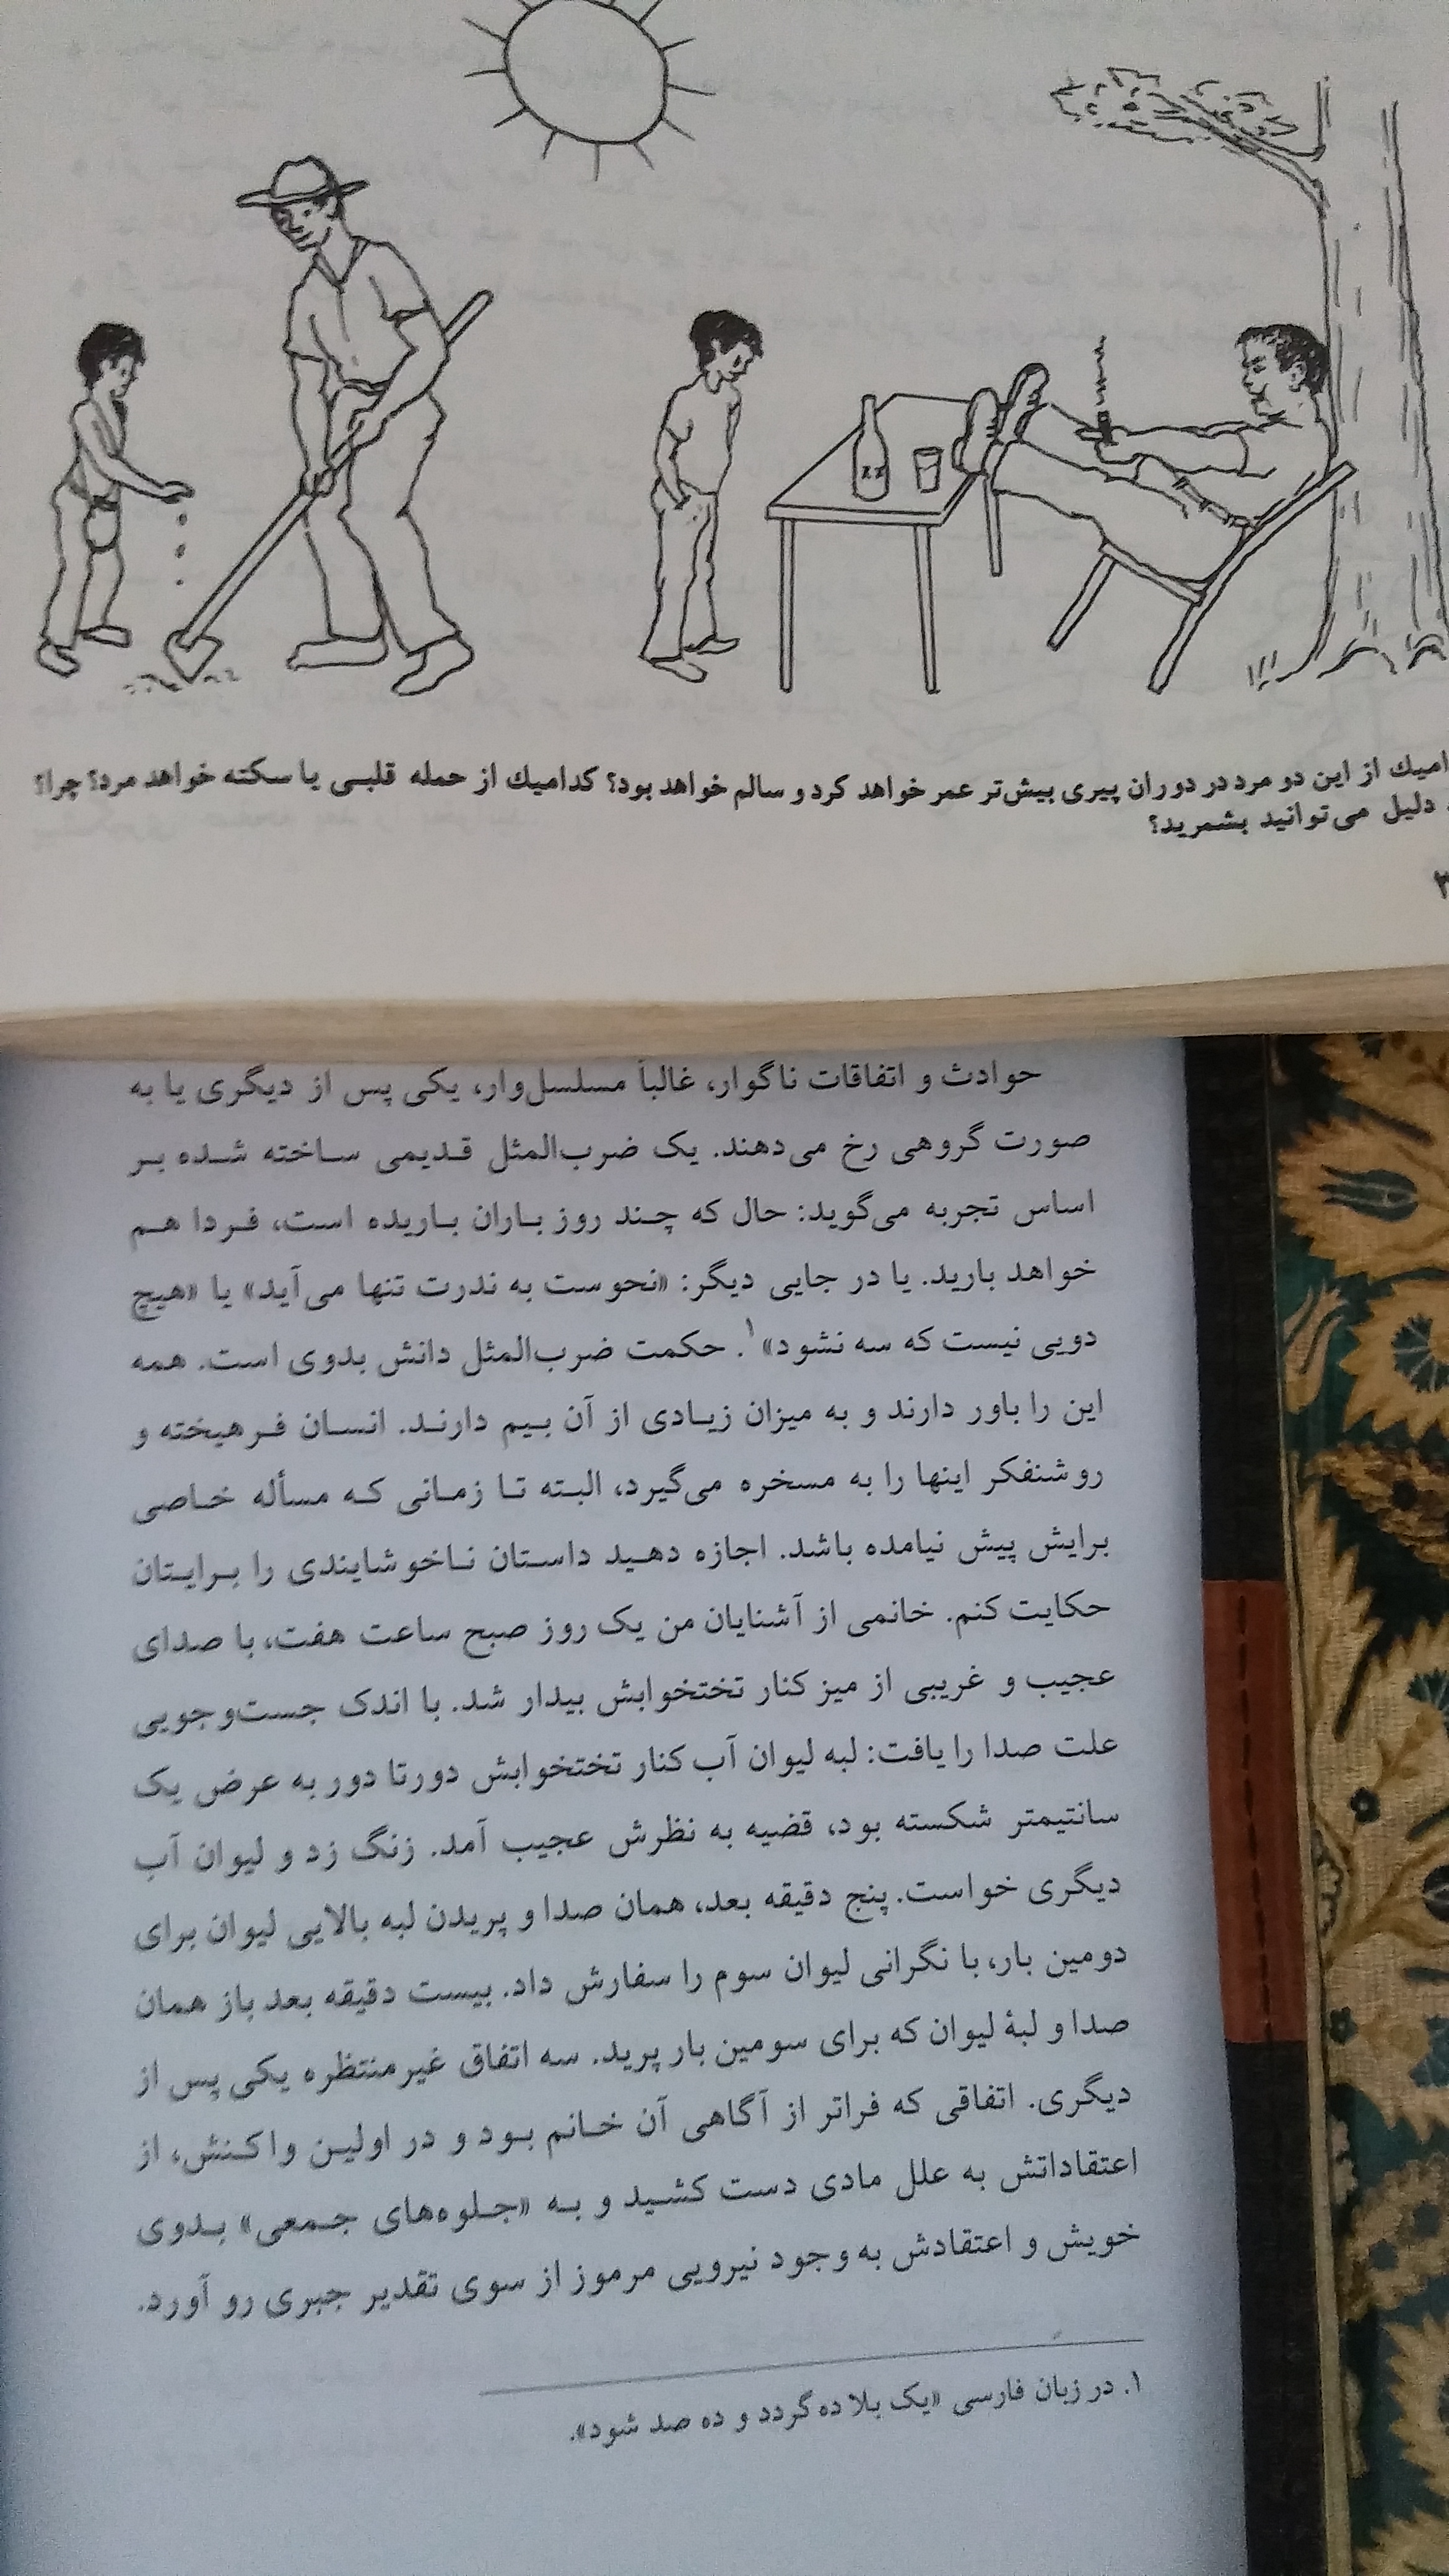 از این دو مرد در دوران پیری بیش‌تر عمر خواهد کرد و سالم خواهد بود؟ کدامیك از حمله قلبی یا سکته خواهد مرد؟ چرا؟
دلیل می‌توانید بشمرید؟
حوادث و اتفاقات ناگوار، غالباً مسلسل‌وار، یکی پس از دیگری یا به
صورت گروهی رخ می‌دهند. یک ضرب‌المثل قدیمی ساخته شده بر
اساس تجربه می‌گوید: حال که چند روز باران باریده است، فردا هم
خواهد بارید. یا در جایی دیگر: «نحوست به ندرت تنها می‌آید» یا «هیچ
دویی نیست که سه نشود»۱. حکمت ضرب‌المثل دانش بدوی است. همه
این را باور دارند و به میزان زیادی از آن بیم دارند. انسان فرهیخته و
روشنفکر اینها را به مسخره می‌گیرد، البته تا زمانی که مسأله خاصی
برایش پیش نیامده باشد. اجازه دهید داستان ناخوشایندی را برایتان
حکایت کنم. خانمی از آشنایان من یک روز صبح ساعت هفت، با صدای
عجیب و غریبی از میز کنار تختخوابش بیدار شد. با اندک جست‌وجویی
علت صدا را یافت: لبه لیوان آب کنار تختخوابش دورتا دور به عرض یک
سانتیمتر شکسته بود، قضیه به نظرش عجیب آمد. زنگ زد و لیوان آب
دیگری خواست. پنج دقیقه بعد، همان صدا و پریدن لبه بالایی لیوان برای
دومین بار، با نگرانی لیوان سوم را سفارش داد. بیست دقیقه بعد باز همان
صدا و لبۀ لیوان که برای سومین بار پرید. سه اتفاق غیرمنتظره یکی پس از
دیگری. اتفاقی که فراتر از آگاهی آن خانم بود و در اولین واکنش، از
اعتقاداتش به علل مادی دست کشید و به «جلوه‌های جمعی» بدوی
خویش و اعتقادش به وجود نیرویی مرموز از سوی تقدیر جبری رو آورد.
۱. در زبان فارسی «یک بلا ده گردد و ده صد شود».